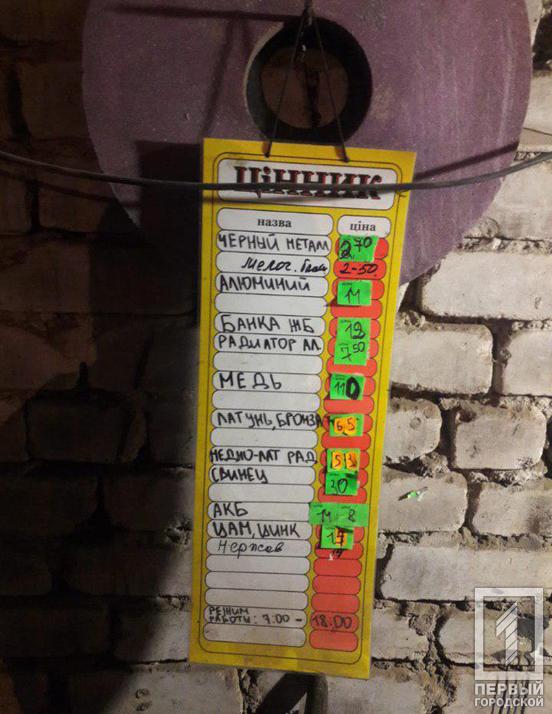 ЦіННИК
назва ціна
ЧЕРНЫЙ МЕТАЛ 2 70
Мелоч. 2-50
АЛЮМИНИЙ 11
БАНКА ЖБ 12
РАДИАТОР АЛ 7 50
МЕДЬ 110
ЛАТУНЬ, БРОНЗА 65
МЕДНО-ЛАТ РАД 53
СВИНЕЦ 20
АКБ 14-8
ЦАМ, ЦИНК 17
Нержав 14
РЕЖИМ
РАБОТЫ: 7:00 - 18:00
1
ПЕРВЫЙ
ГОРОДСКОЙ